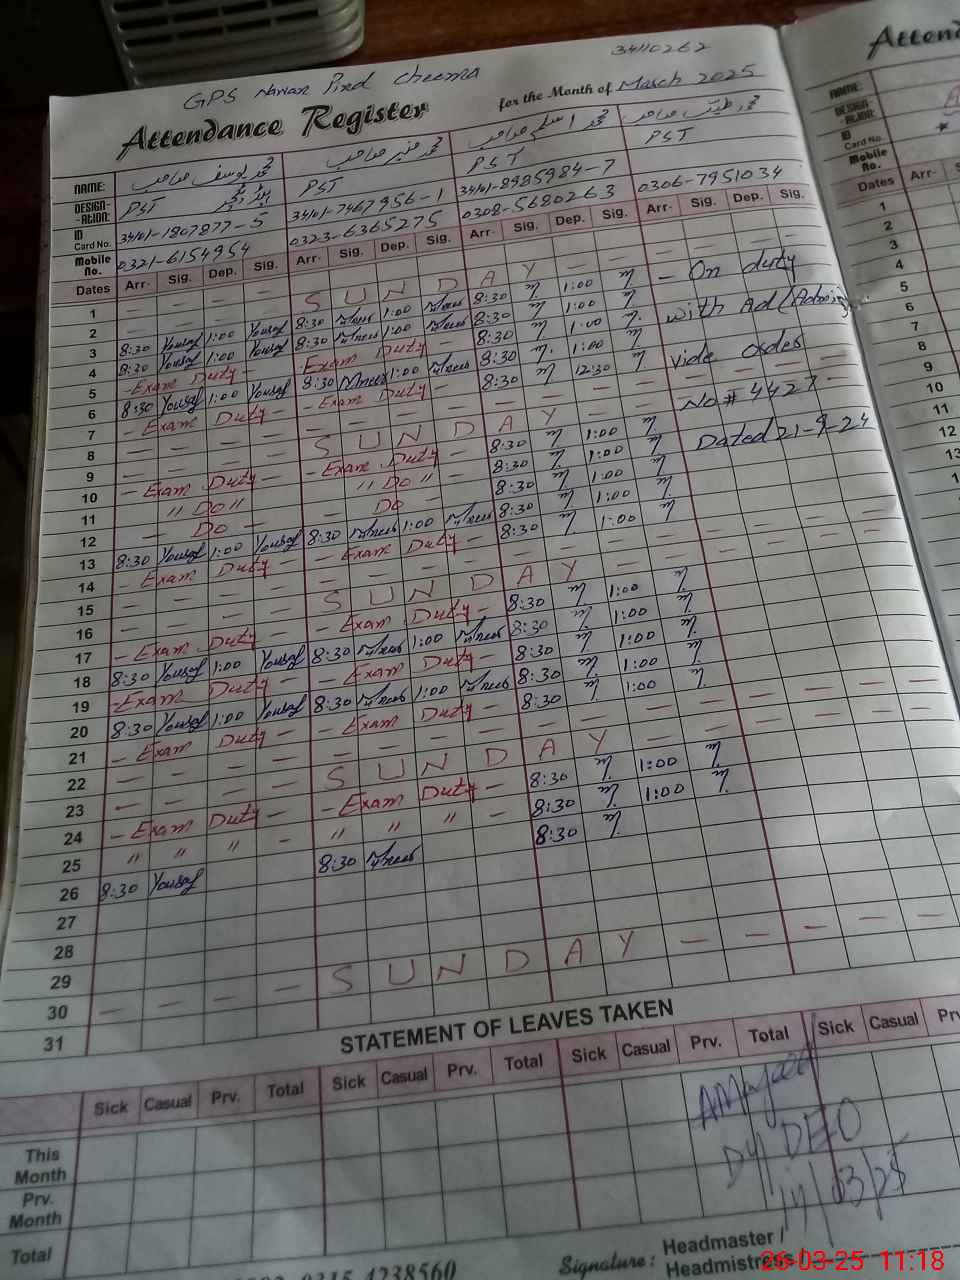 34110262
GPS Nawan Pind Cheema
Attendance Register for the Month of March 2025
NAME: محمد یوسف صاحب محمد منیر صاحب محمد اسلم صاحب محمد طیب صاحب
DESIGNATION: PST PST PST PST
ID Card No. 34101-1807877-5 34101-7467956-1 34101-8985984-7
Mobile No. 0321-6154954 0323-6365275 0308-5680263 0306-7951034
Dates Arr. Sig. Dep. Sig. Arr. Sig. Dep. Sig. Arr. Sig. Dep. Sig. Arr. Sig. Dep. Sig.
1
2 — — — — S U N D A Y — —
3 8:30 Yousaf 1:00 Yousaf 8:30 Muneeb 1:00 Muneeb 8:30 1:00
4 8:30 Yousaf 1:00 Yousaf 8:30 Muneeb 1:00 Muneeb 8:30 1:00
5 - Exam Duty - - Exam Duty - 8:30 1:00
6 8:30 Yousaf 1:00 Yousaf 8:30 Muneeb 1:00 Muneeb 8:30 1:00
7 - Exam Duty - - Exam Duty - 8:30 12:30
- On duty
with Ad (Admin)
vide order
No # 4427
Dated 21-9-24
8
9 — — — — S U N D A Y — —
10 - Exam Duty - - Exam Duty - 8:30 1:00
11 " Do " " Do " 8:30 1:00
12 - Do - - Do - 8:30 1:00
13 8:30 Yousaf 1:00 Yousaf 8:30 Muneeb 1:00 Muneeb 8:30 1:00
14 - Exam Duty - - Exam Duty - 8:30 1:00
15
16 — — — — S U N D A Y — —
17 - Exam Duty - - Exam Duty - 8:30 1:00
18 8:30 Yousaf 1:00 Yousaf 8:30 Muneeb 1:00 Muneeb 8:30 1:00
19 - Exam Duty - - Exam Duty - 8:30 1:00
20 8:30 Yousaf 1:00 Yousaf 8:30 Muneeb 1:00 Muneeb 8:30 1:00
21 - Exam Duty - - Exam Duty - 8:30 1:00
22
23 — — — — S U N D A Y — —
24 - Exam Duty - - Exam Duty - 8:30 1:00
25 " " " - " " " - 8:30 1:00
26 8:30 Yousaf 8:30 Muneeb 8:30
27
28
29
30 — — — — S U N D A Y — — — —
31
STATEMENT OF LEAVES TAKEN
Sick Casual Prv. Total Sick Casual Prv. Total Sick Casual Prv. Total Sick Casual
This Month
Prv. Month
Total
Dy DEO
Signature: Headmaster / Headmistress
0315 4238560
NAME:
DESIGN-ATION:
ID Card No.
Mobile No.
Dates Arr.
1
2
3
4
5
6
7
8
9
10
11
12
26-03-25 11:18